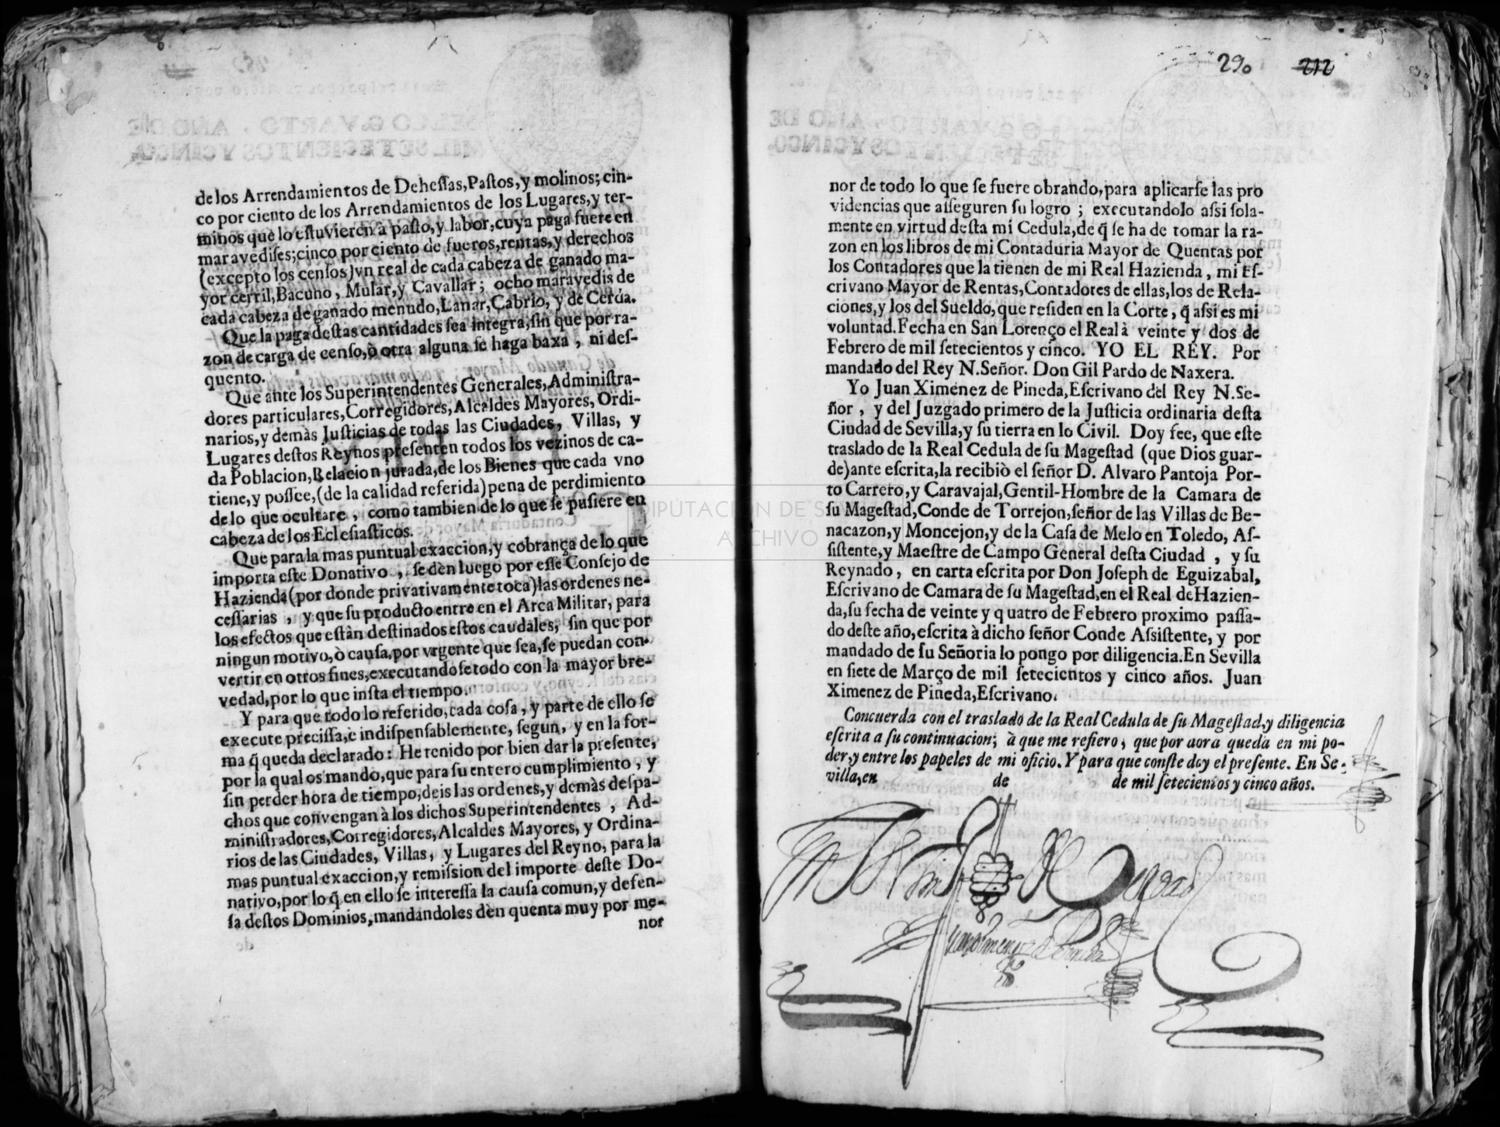 de los Arrendamientos de Dehessas, Pastos, y molinos; cin-
co por ciento de los Arrendamientos de los Lugares, y ter-
minos que lo estuvieren à pasto, y labor, cuya paga fuere en
maravedises; cinco por ciento de fueros, rentas, y derechos
(excepto los censos) vn real de cada cabeza de ganado ma-
yor cerril, Bacuno, Mular, y Cavallar; ocho maravedis de
cada cabeza de ganado menudo, Lanar, Cabrio, y de Cerda.
Que la paga destas cantidades sea integra, sin que por ra-
zon de carga de censo, ò otra alguna se haga baxa, ni des-
quento.
Que ante los Superintendentes Generales, Administra-
dores particulares, Corregidores, Alcaldes Mayores, Ordi-
narios, y demàs Justicias de todas las Ciudades, Villas, y
Lugares destos Reynos presenten todos los vezinos de ca-
da Poblacion, Relacion jurada, de los Bienes que cada vno
tiene, y possee, (de la calidad referida) pena de perdimiento
de lo que ocultare, como tambien de lo que se pusiere en
cabeza de los Eclesiasticos.
Que para la mas puntual exaccion, y cobrança de lo que
importa este Donativo, se dèn luego por esse Consejo de
Hazienda (por donde privativamente toca) las ordenes ne-
cessarias, y que su producto entre en el Arca Militar, para
los efectos que estàn destinados estos caudales, sin que por
ningun motivo, ò causa, por vrgente que sea, se puedan con-
vertir en otros fines, executandose todo con la mayor bre-
vedad, por lo que insta el tiempo.
Y para que todo lo referido, cada cosa, y parte de ello se
execute precissa, e indispensablemente, segun, y en la for-
ma q̃ queda declarado: He tenido por bien dar la presente,
por la qual os mando, que para su entero cumplimiento, y
sin perder hora de tiempo, deis las ordenes, y demàs despa-
chos que convengan à los dichos Superintendentes, Ad-
ministradores, Corregidores, Alcaldes Mayores, y Ordina-
rios de las Ciudades, Villas, y Lugares del Reyno, para la
mas puntual exaccion, y remission del importe deste Do-
nativo, por lo q̃ en ello se interessa la causa comun, y defen-
sa destos Dominios, mandandoles dèn quenta muy por me-
nor
290 212
nor de todo lo que se fuere obrando, para aplicarse las pro
videncias que asseguren su logro; executandolo assi sola-
mente en virtud desta mi Cedula, de q̃ se ha de tomar la ra-
zon en los libros de mi Contaduria Mayor de Quentas por
los Contadores que la tienen de mi Real Hazienda, mi Es-
crivano Mayor de Rentas, Contadores de ellas, los de Rela-
ciones, y los del Sueldo, que residen en la Corte, q̃ assi es mi
voluntad. Fecha en San Lorenço el Real à veinte y dos de
Febrero de mil setecientos y cinco. YO EL REY. Por
mandado del Rey N. Señor. Don Gil Pardo de Naxera.
Yo Juan Ximenez de Pineda, Escrivano del Rey N. Se-
ñor, y del Juzgado primero de la Justicia ordinaria desta
Ciudad de Sevilla, y su tierra en lo Civil. Doy fee, que este
traslado de la Real Cedula de su Magestad (que Dios guar-
de) ante escrita, la recibiò el señor D. Alvaro Pantoja Por-
to Carrero, y Caravajal, Gentil-Hombre de la Camara de
su Magestad, Conde de Torrejon, señor de las Villas de Be-
nacazon, y Moncejon, y de la Casa de Melo en Toledo, As-
sistente, y Maestre de Campo General desta Ciudad, y su
Reynado, en carta escrita por Don Joseph de Eguizabal,
Escrivano de Camara de su Magestad, en el Real de Hazien-
da, su fecha de veinte y quatro de Febrero proximo passa-
do deste año, escrita à dicho señor Conde Assistente, y por
mandado de su Señoria lo pongo por diligencia. En Sevilla
en siete de Março de mil setecientos y cinco años. Juan
Ximenez de Pineda, Escrivano.
Concuerda con el traslado de la Real Cedula de su Magestad, y diligencia
escrita a su continuacion; à que me refiero, que por aora queda en mi po-
der, y entre los papeles de mi oficio. Y para que conste doy el presente. En Se-
villa, en de de mil setecientos y cinco años.
DIPUTACIÓN DE S
ARCHIVO